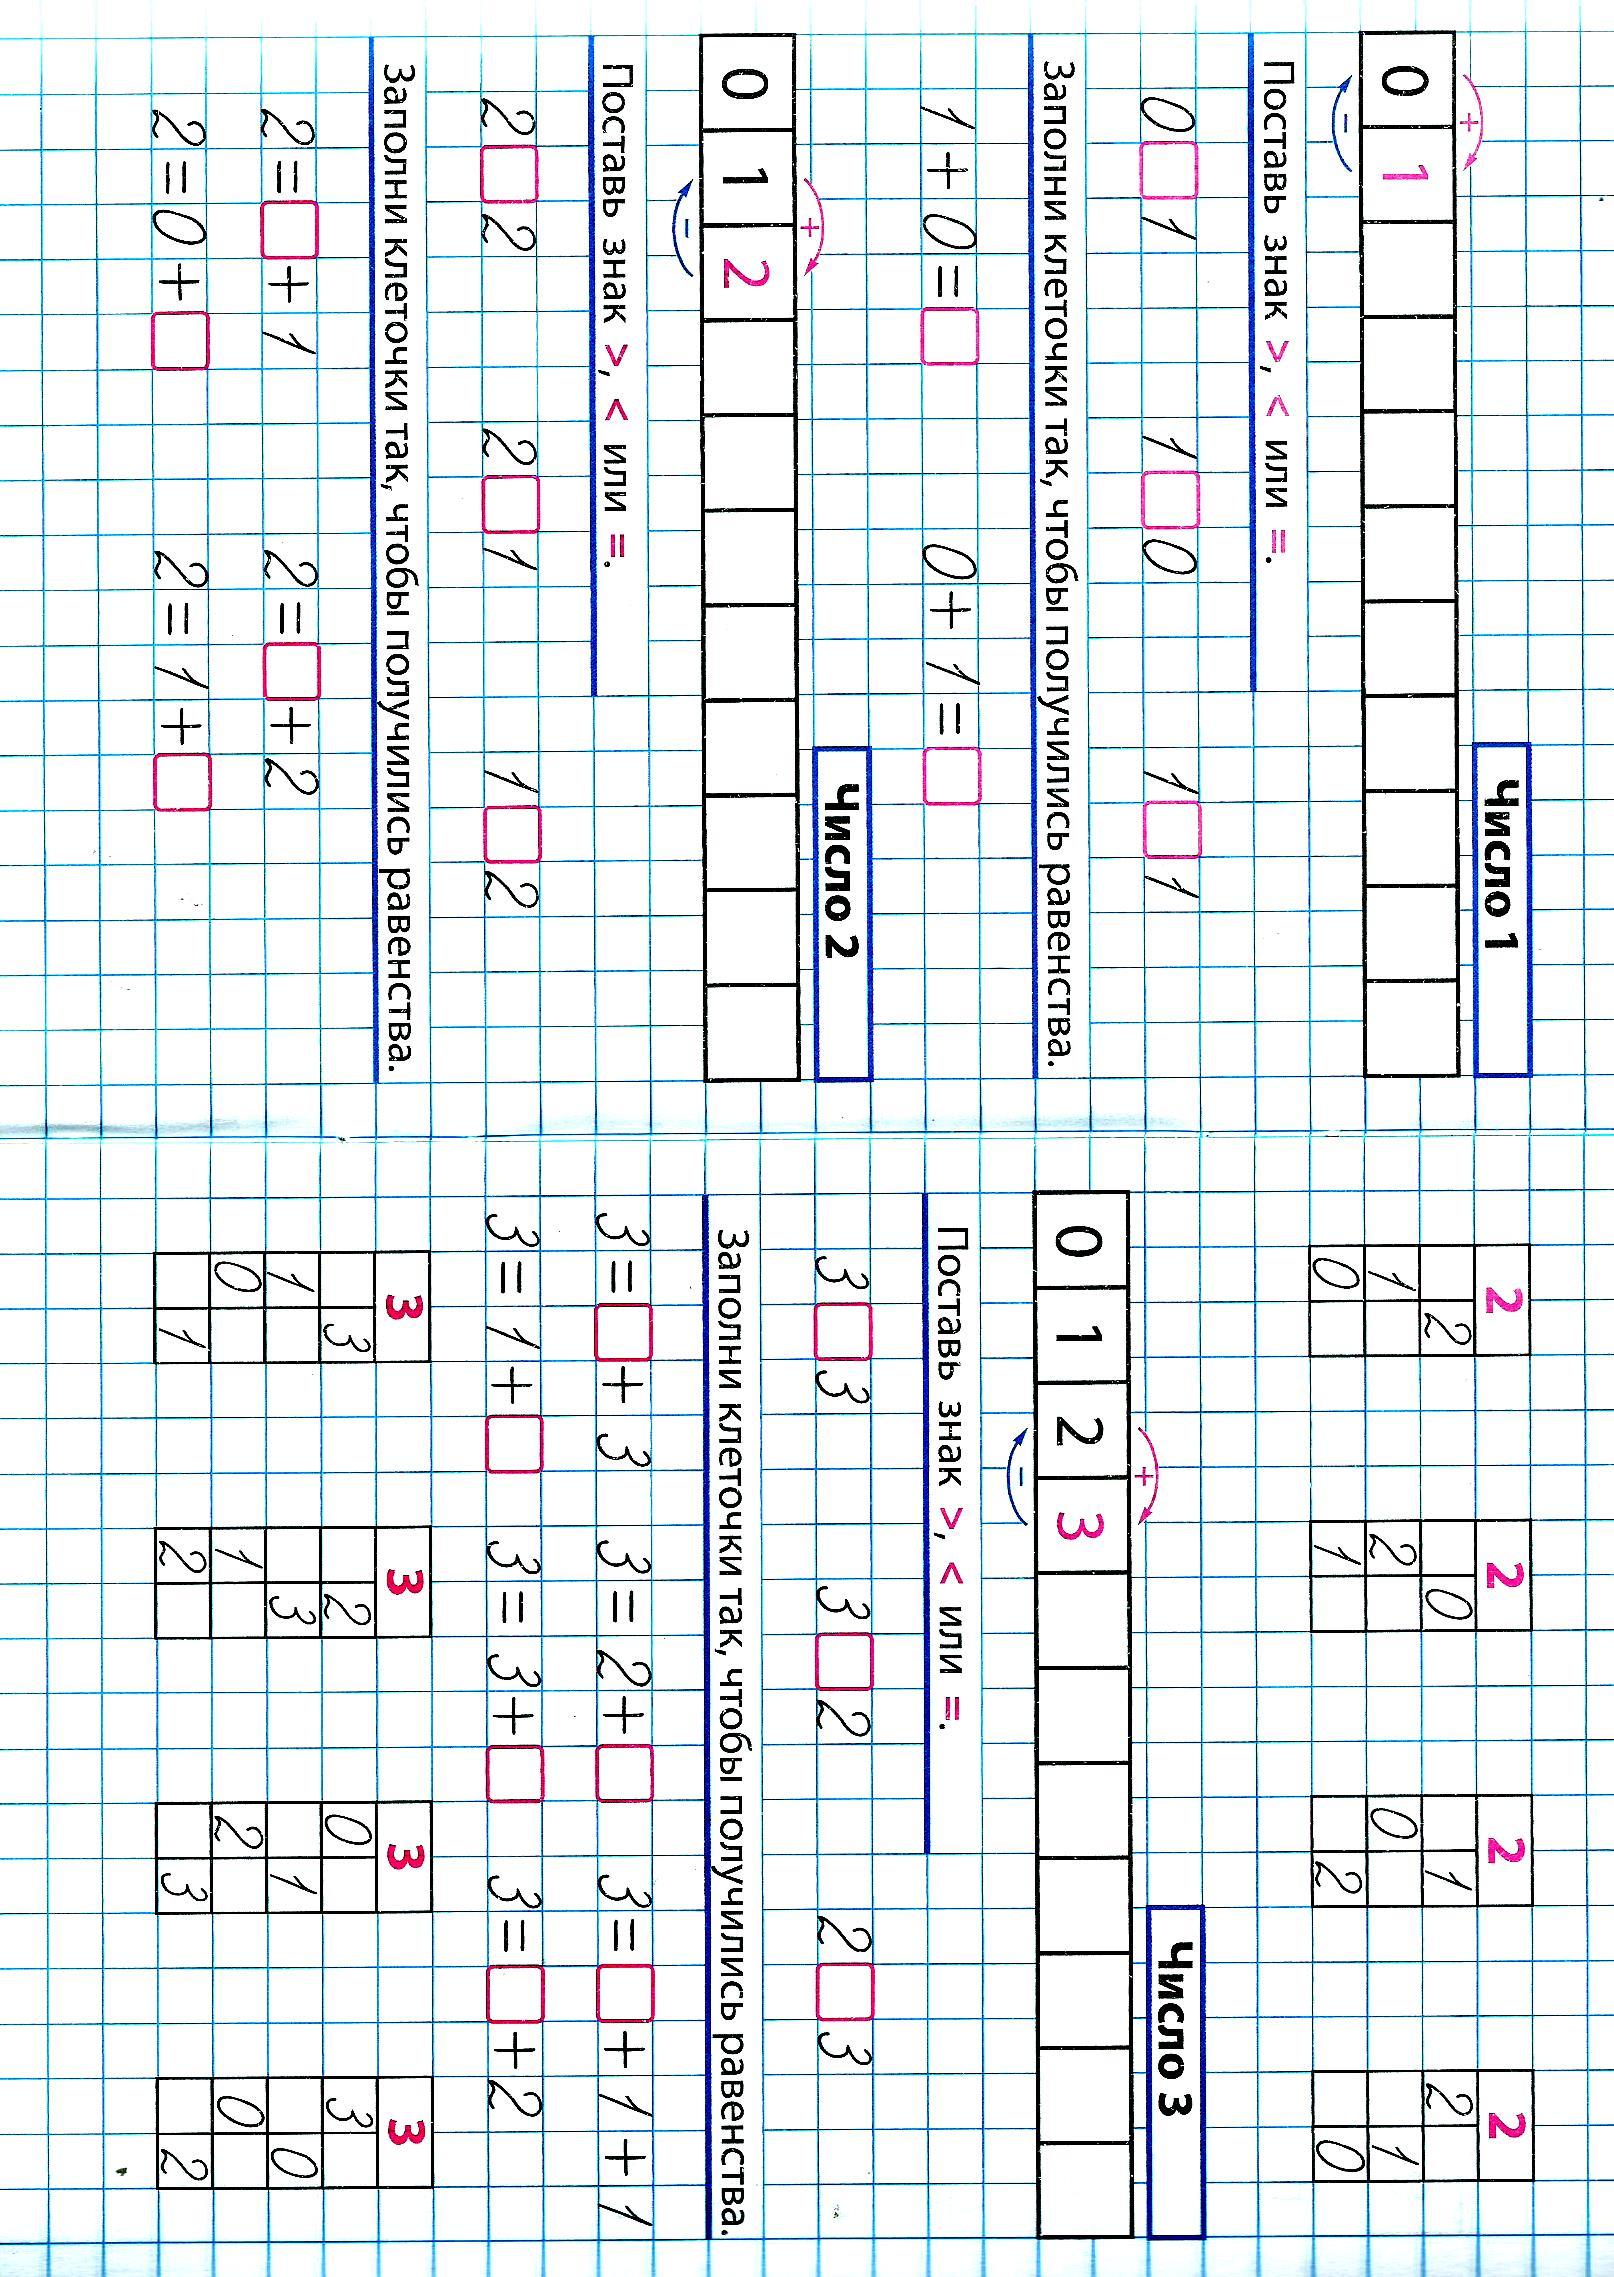 Число 1
0 1
Поставь знак >, < или =.
0 □ 1 1 □ 0 1 □ 1
Заполни клеточки так, чтобы получились равенства.
1 + 0 = □ 0 + 1 = □
Число 2
0 1 2
Поставь знак >, < или =.
2 □ 2 2 □ 1 1 □ 2
Заполни клеточки так, чтобы получились равенства.
2 = □ + 1 2 = □ + 2
2 = 0 + □ 2 = 1 + □
2 2 2 2
2 0 1 2
1 2 0 1
0 1 2 0
Число 3
0 1 2 3
Поставь знак >, < или =.
3 □ 3 3 □ 2 2 □ 3
Заполни клеточки так, чтобы получились равенства.
3 = □ + 3 3 = 2 + □ 3 = □ + 1 + 1
3 = 1 + □ 3 = 3 + □ 3 = □ + 2
3 3 3 3
3 2 0 3
1 3 1 0
0 1 2 0
1 2 3 2